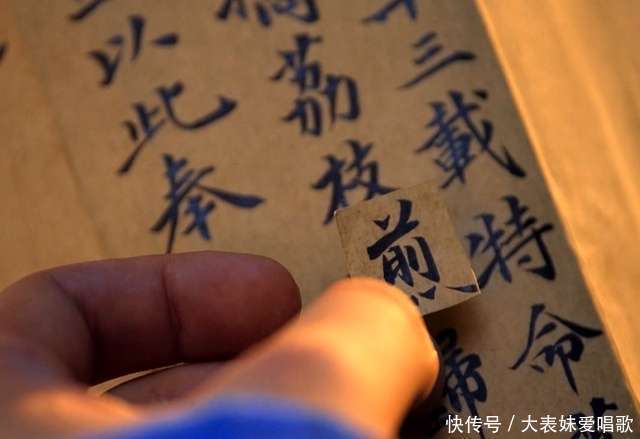 三載特命
荔枝煎
以此奉
快传号 / 大表妹爱唱歌